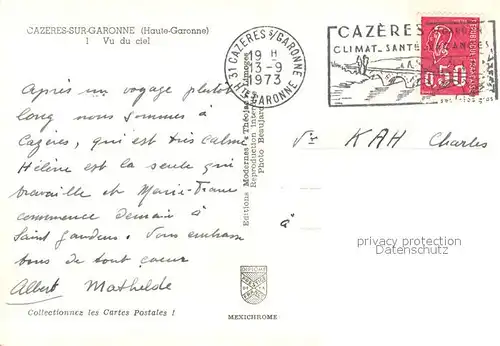 CAZERES-SUR-GARONNE (Haute-Garonne)
1 Vu du ciel
Après un voyage plutôt
long nous sommes à
Cazères, qui est très calme
Hélène est la seule qui
travaille et Marie-France
commence demain à
Saint Gaudens. Vous embrasse
tous de tout coeur
Albert Mathilde
Collectionnez les Cartes Postales !
Editions Modernes "Théojac"
Reproduction
Photo Beaujard
DIPLOME
PRESTIGE
MEXICHROME
31 CAZERES S/GARONNE
19 H
3-9
1973
HTE GARONNE
CAZÈRES
CLIMAT_SANTE
0,50
KAH Charles
à
privacy protection
watermark